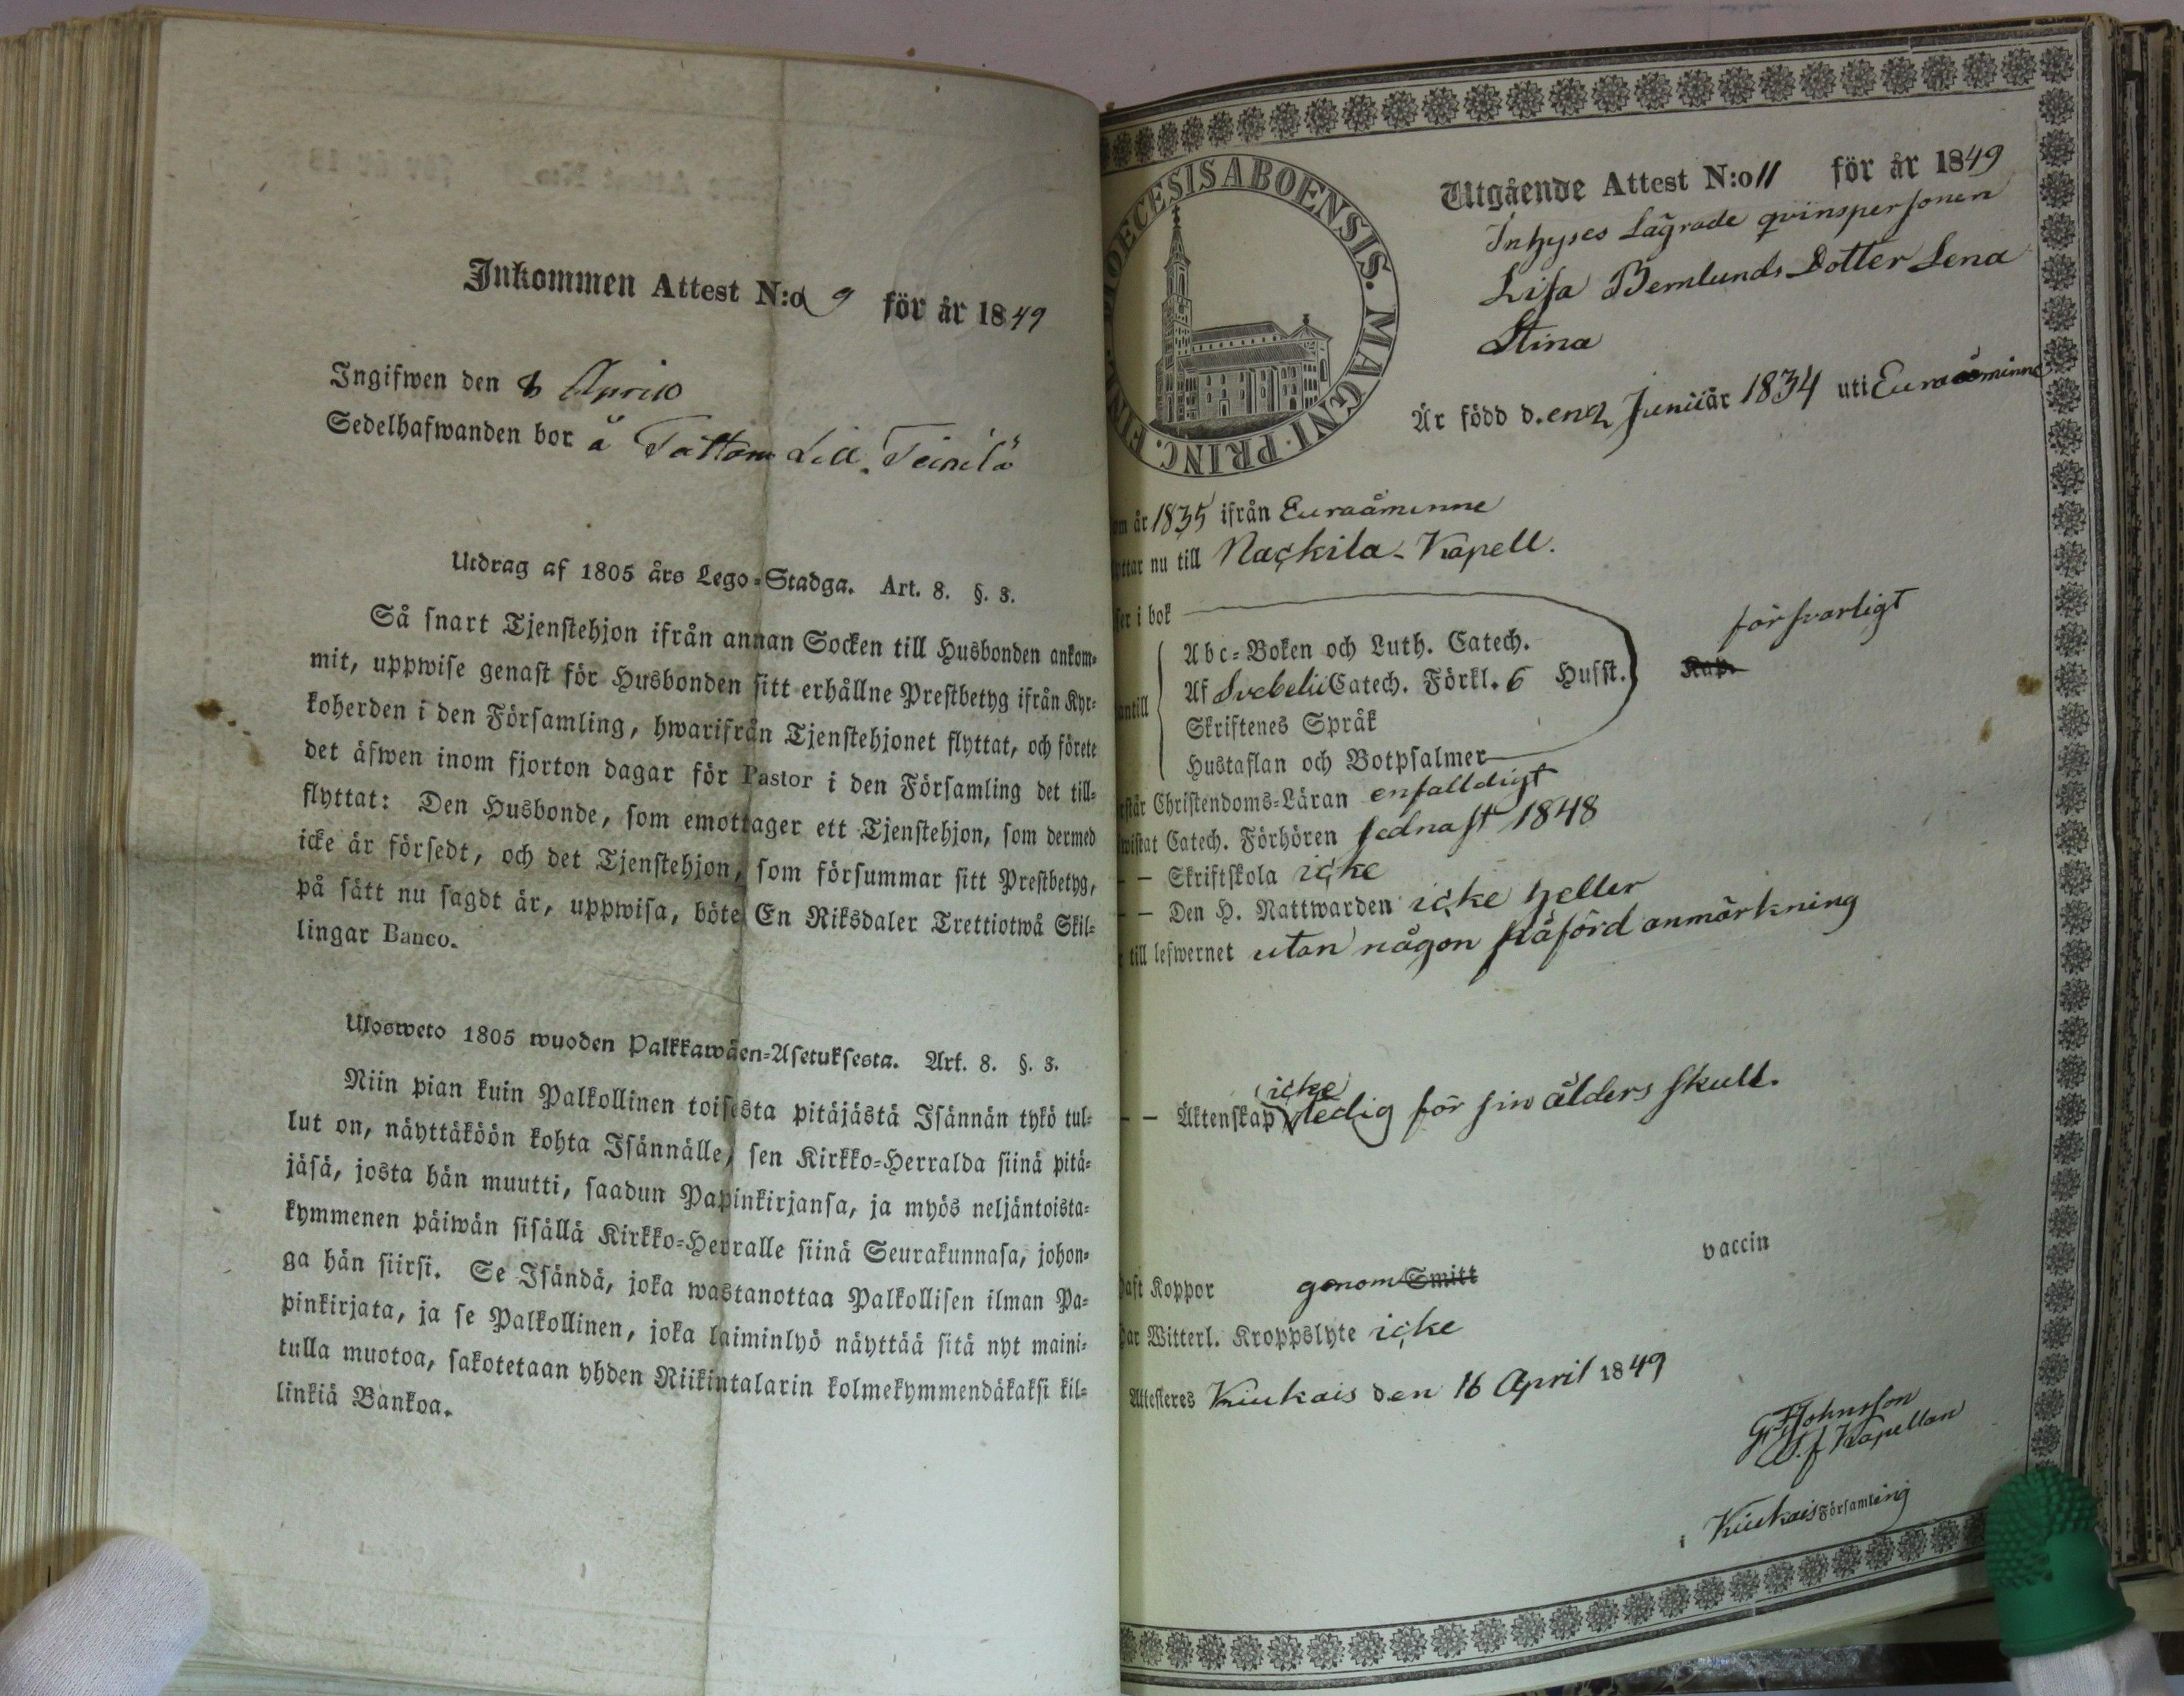 Inkommen Attest N:o 9 för år 1849
Ingifwen den 8 April
Sedelhafwanden bor å Tattara Lill Teinilä
Utdrag af 1805 års Lego-Stadga. Art. 8. §. 3.
Så snart Tjenstehjon ifrån annan Socken till Husbonden ankom-
mit, uppwise genast för Husbonden sitt erhållne Prestbetyg ifrån Kyr-
koherden i den Församling, hwarifrån Tjenstehjonet flyttat, och förete
det äfwen inom fjorton dagar för Pastor i den Församling det till-
flyttat: Den Husbonde, som emottager ett Tjenstehjon, som dermed
icke är försedt, och det Tjenstehjon, som försummar sitt Prestbetyg,
på sätt nu sagdt är, uppwisa, böte En Riksdaler Trettiotwå Skil-
lingar Banco.
Ulosweto 1805 wuoden Palkkawäen-Asetuksesta. Art. 8. §. 3.
Niin pian kuin Palkollinen toisesta pitäjästä Isännän tykö tul-
lut on, näyttäköön kohta Isännälle, sen Kirkko-Herralda siinä pitä-
jäsä, josta hän muutti, saadun Papinkirjansa, ja myös neljäntoista-
kymmenen päiwän sisällä Kirkko-Herralle siinä Seurakunnasa, johon-
ga hän siirsi. Se Isändä, joka wastanottaa Palkollisen ilman Pa-
pinkirjata, ja se Palkollinen, joka laiminlyö näyttää sitä nyt maini-
tulla muotoa, sakotetaan yhden Riikintalarin kolmekymmendäkaksi kil-
linkiä Bankoa.
DIOECESIS ABOENSIS. MAGNI PRINC. FINL.
Utgående Attest N:o 11 för år 1849
Inhyses Lägrade qvinspersonen
Lisa Bernlunds Dotter Lena
Stina
Är född d. en 2 Junii år 1834 uti Euraåminne
om år 1835 ifrån Euraåminne
ttar nu till Nackila-Kapell.
ser i bok
Abc-Boken och Luth. Catech.
försvarligt
antill Af Svebelii Catech. Förkl. 6 Husst.
Skriftenes Språk
Hustaflan och Botpsalmer
rstår Christendoms-Läran enfalldigt
wistat Catech. Förhören sednast 1848
- - Skriftskola icke
- - Den H. Nattwarden icke heller
till lefwernet utan någon påförd anmärkning
icke
- - Äktenskap ledig för sin ålders skull.
haft Koppor genom Smitt vaccin
har Witterl. Kroppslyte icke
Attesteres Kiukais den 16 April 1849
Johnsson
V. f Kapellan
i Kiukais Församling